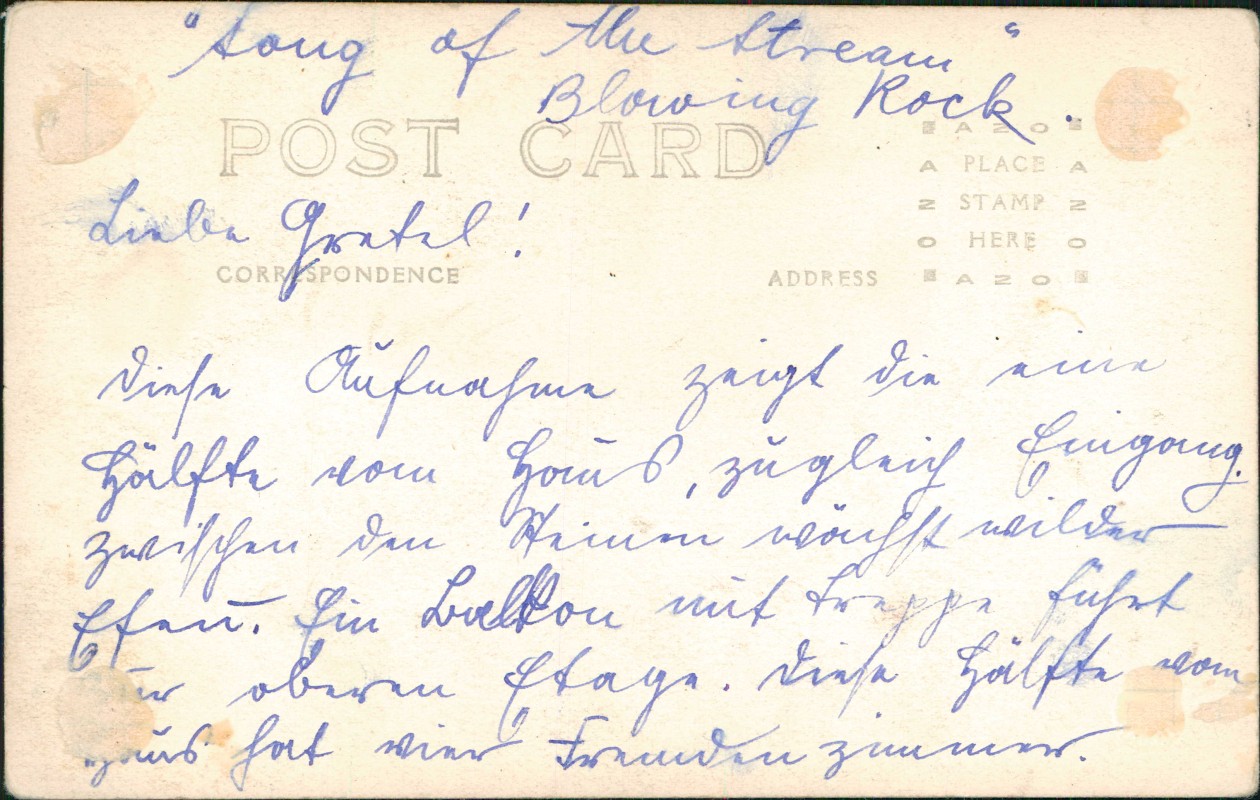 "Song of the Stream"
Blowing Rock.
POST CARD
A Z O
A PLACE A
Z STAMP Z
O HERE O
A Z O
Liebe Gretel!
CORRESPONDENCE ADDRESS
Diese Aufnahme zeigt die eine
Hälfte vom Haus, zugleich Eingang.
zwischen den Steinen wächst wilder
Efeu. Ein Balkon mit Treppe führt
zur oberen Etage. Diese Hälfte vom
Haus hat vier Fremdenzimmer.